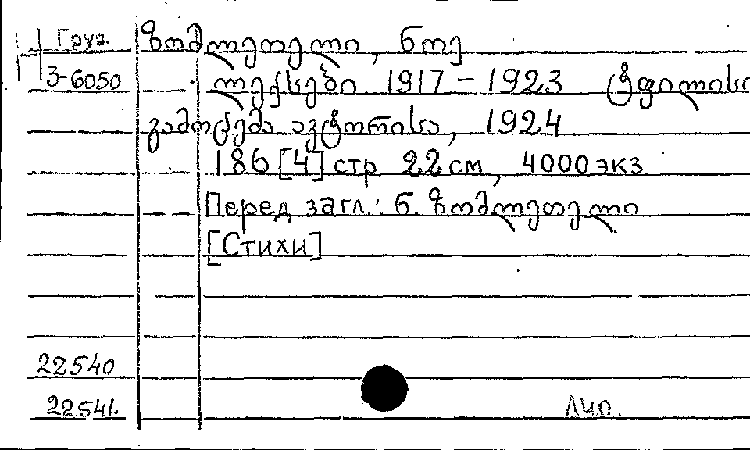 Груз. ზომლეთელი, ნოე
3-6050 ლექსები 1917 - 1923 ტფილისი
გამოცემა ავტორისა, 1924
186 [4] стр 22 см, 4000 экз
Перед загл.: ნ. ზომლეთელი
[Стихи]
22540
22541. Лир.